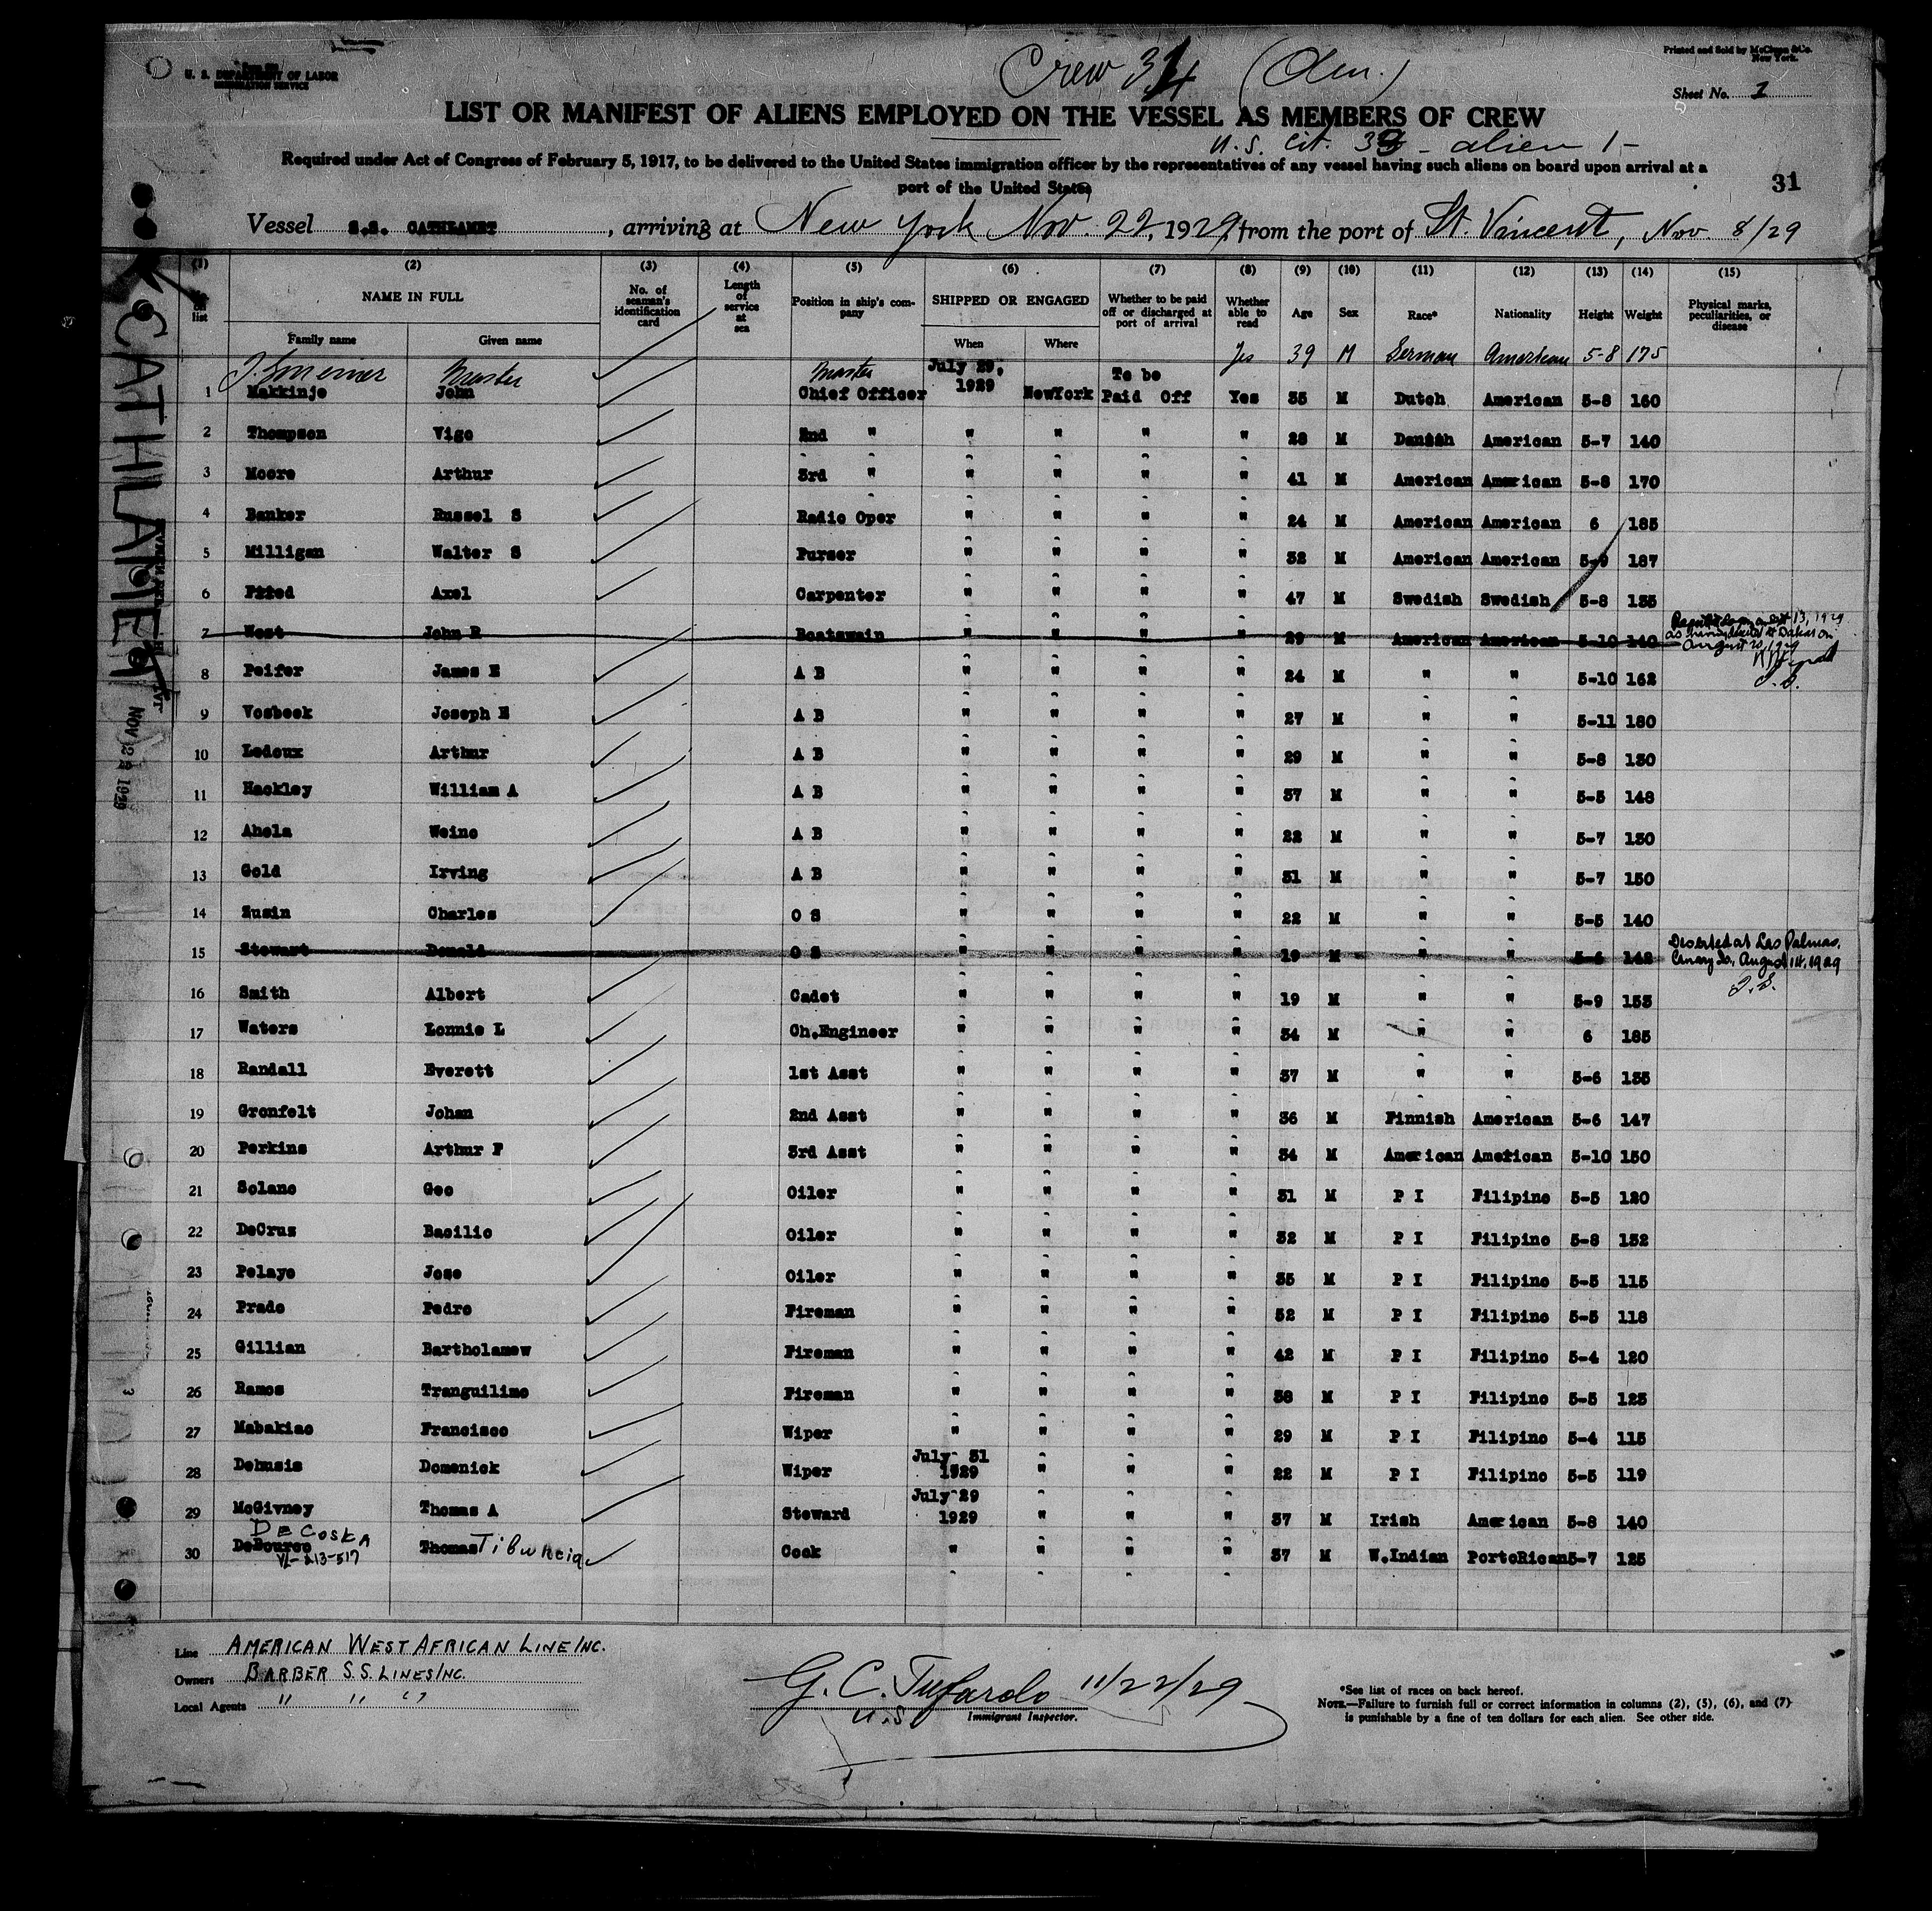 Crew 34 (Am.)
Printed and Sold by McClunn &Co.
New York.
U. S. DEPARTMENT OF LABOR
IMMIGRATION SERVICE
Sheet No. 1
LIST OR MANIFEST OF ALIENS EMPLOYED ON THE VESSEL AS MEMBERS OF CREW
U.S. Cit. 33 - alien 1 -
Required under Act of Congress of February 5, 1917, to be delivered to the United States immigration officer by the representatives of any vessel having such aliens on board upon arrival at a
port of the United States
31
Vessel S.S. CATHLAMET, arriving at New York Nov. 22, 1929, from the port of St. Vincent, Nov. 8/29
(1) (2) (3) (4) (5) (6) (7) (8) (9) (10) (11) (12) (13) (14) (15)
list NAME IN FULL No. of seaman's identification card Length of service at sea Position in ship's company SHIPPED OR ENGAGED Whether to be paid off or discharged at port of arrival Whether able to read Age Sex Race* Nationality Height Weight Physical marks, peculiarities, or disease
Family name Given name When Where
Master Master Yes 39 M German American 5-8 175
1 Makkinje John Chief Officer July 29, 1929 NewYork To be Paid Off Yes 35 M Dutch American 5-8 160
2 Thompson Vigo 2nd " " " " " 28 M Danish American 5-7 140
3 Moore Arthur 3rd " " " " " 41 M American American 5-8 170
4 Banker Russel S Radio Oper " " " " 24 M American American 6 185
5 Milligan Walter S Purser " " " " 32 M American American 5-9 187
6 Axel Carpenter " " " " 47 M Swedish Swedish 5-8 135
7 West John R Boatswain " " " " 29 M American American 5-10 140
8 Peifer James E A B " " " " 24 M " " 5-10 162
9 Vosbeck Joseph E A B " " " " 27 M " " 5-11 180
10 Ledoux Arthur A B " " " " 29 M " " 5-8 130
11 Hackley William A A B " " " " 37 M " " 5-5 148
12 Ahola Weino A B " " " " 22 M " " 5-7 130
13 Gold Irving A B " " " " 31 M " " 5-7 150
14 Zusin Charles O S " " " " 22 M " " 5-5 140
15 Stewart Donald O S " " " " 19 M " " 5-6 142 Deserted at Las Palmas, Canary Is., August 14, 1929
16 Smith Albert Cadet " " " " 19 M " " 5-9 153
17 Waters Lonnie L Ch.Engineer " " " " 34 M " " 6 185
18 Randall Everett 1st Asst " " " " 37 M " " 5-6 135
19 Gronfelt Johan 2nd Asst " " " " 36 M Finnish American 5-6 147
20 Perkins Arthur F 3rd Asst " " " " 34 M American American 5-10 150
21 Solano Geo Oiler " " " " 31 M P I Filipino 5-5 120
22 DeCruz Basilio Oiler " " " " 32 M P I Filipino 5-8 132
23 Pelayo Jose Oiler " " " " 35 M P I Filipino 5-5 115
24 Prado Pedro Fireman " " " " 32 M P I Filipino 5-5 118
25 Gillian Bartholamew Fireman " " " " 42 M P I Filipino 5-4 120
26 Ramos Tranguilimo Fireman " " " " 38 M P I Filipino 5-5 125
27 Mabakiao Francisco Wiper " " " " 29 M P I Filipino 5-4 115
28 Debusis Domenick Wiper July 31 1929 " " " 22 M P I Filipino 5-5 119
29 McGivney Thomas A Steward July 29 1929 " " " 37 M Irish American 5-8 140
DE COSKA
30 Thomas Cook " " " " 37 M W.Indian PortoRican 5-7 125
CATHLAMET
NOV 22 1929
Line AMERICAN WEST AFRICAN LINE INC.
Owners BARBER S.S. LINES INC.
Local Agents " " "
G. C. Tufardo 11/22/29
U.S. Immigrant Inspector.
*See list of races on back hereof.
NOTE.—Failure to furnish full or correct information in columns (2), (5), (6), and (7)
is punishable by a fine of ten dollars for each alien. See other side.